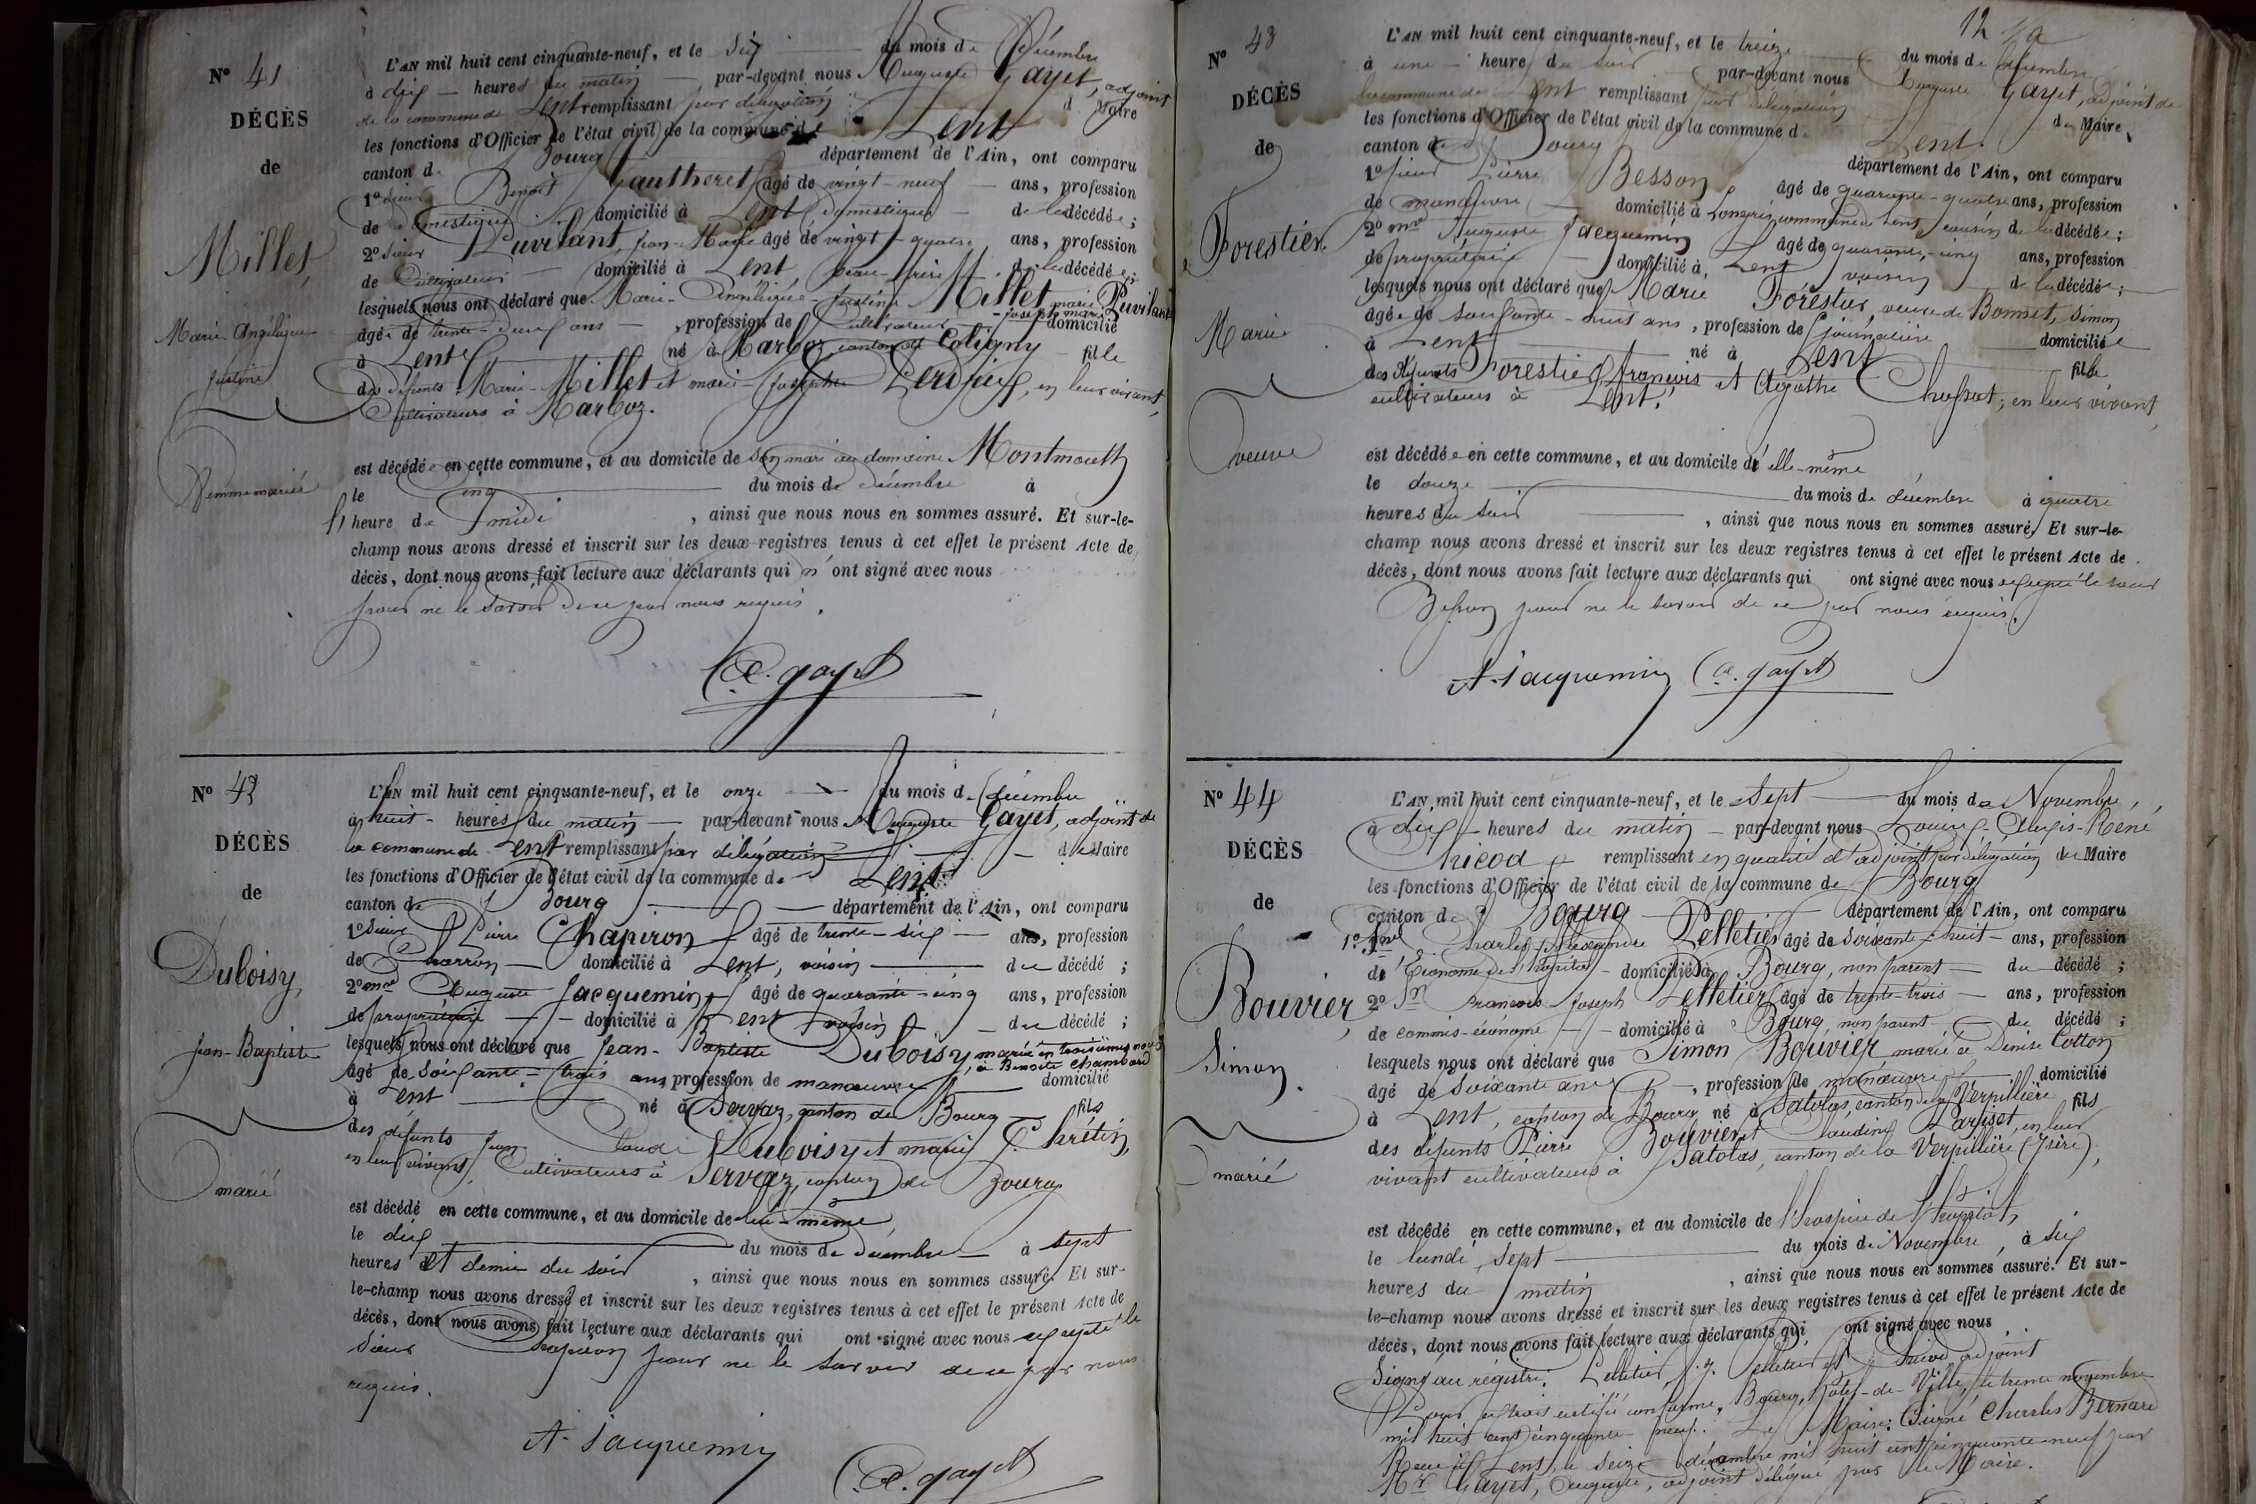 N° 41
DÉCÈS
de
Millet
Marie-Angélique
Justine
Femme mariée
L'AN mil huit cent cinquante-neuf, et le six du mois de Décembre
à dix heures du matin par-devant nous Auguste Gayet, adjoint
de la commune de Lent remplissant par délégation d Maire
les fonctions d'Officier de l'état civil de la commune de Lent
canton de Bourg département de l'Ain, ont comparu
1° Sieur Benoit Gautheret âgé de vingt-neuf ans, profession
de domestique domicilié à Lent, domestique de la décédée;
2° Sieur Puvilant, Jean-Marie âgé de vingt-quatre ans, profession
de Cultivateur domicilié à Lent, beau-frère de la décédée;
lesquels nous ont déclaré que Marie-Angélique-Justine Millet mariée Puvilant
Joseph Marie
âgée de trente ans, profession de Cultivateur domicilié
à Lent né à Marboz, canton de Coligny fille
des défunts Marie Millet et marie-Josephte en leur vivant,
Cultivateurs à Marboz.
est décédée en cette commune, et au domicile de son mari au domaine Montmouth
le cinq du mois de décembre à
l'heure de midi, ainsi que nous nous en sommes assuré. Et sur-le-
champ nous avons dressé et inscrit sur les deux registres tenus à cet effet le présent Acte de
décès, dont nous avons fait lecture aux déclarants qui n'ont signé avec nous
pour ne le savoir de ce par nous requis.
A. gayet
N° 42
DÉCÈS
de
Duboisy
Jean-Baptiste
marié
L'AN mil huit cent cinquante-neuf, et le onze du mois de décembre
à huit heures du matin par-devant nous Auguste Gayet, adjoint de
la commune de Lent remplissant par délégation du Maire
les fonctions d'Officier de l'état civil de la commune de Lent
canton de Bourg département de l'Ain, ont comparu
1° Sieur Pierre Chapiron âgé de trente-six ans, profession
de Charron domicilié à Lent, voisin du décédé;
2° mr Auguste Jacquemin âgé de quarante-cinq ans, profession
de propriétaire domicilié à Lent voisin du décédé;
lesquels nous ont déclaré que Jean-Baptiste Duboisy, marié en troisièmes noces
à Benoite Chambard
âgé de soixante-trois ans, profession de manoeuvre domicilié
à Lent né à Servaz, canton de Bourg fils
des défunts Jean Claude Duboisy et marie Chrétin,
en leur vivant, Cultivateurs à Servaz, canton de Bourg
est décédé en cette commune, et au domicile de lui-même
le dix du mois de décembre à sept
heures et demie du soir, ainsi que nous nous en sommes assuré. Et sur-
le-champ nous avons dressé et inscrit sur les deux registres tenus à cet effet le présent Acte de
décès, dont nous avons fait lecture aux déclarants qui ont signé avec nous excepté le
Sieur Chapiron pour ne le savoir de ce par nous
requis.
A. Jacquemin
A. gayet
12
N° 43
DÉCÈS
de
Forestier
Marie
veuve
L'AN mil huit cent cinquante-neuf, et le treize du mois de décembre
à une heure du soir par-devant nous Auguste Gayet, adjoint de
la commune de Lent remplissant par délégation du Maire
les fonctions d'Officier de l'état civil de la commune de Lent.
canton de Bourg département de l'Ain, ont comparu
1° Sieur Pierre Besson âgé de quarante-quatre ans, profession
de manoeuvre domicilié à Longris commune de Lent, cousin de la décédée;
2° mr Auguste Jacquemin âgé de quarante-cinq ans, profession
de propriétaire domicilié à Lent voisin de la décédée;
lesquels nous ont déclaré que Marie Forestier, veuve de Bonnet, Simon
âgée de soixante-huit ans, profession de journalière domiciliée
à Lent né à Lent fille
des défunts Forestier françois et Agathe en leur vivant,
cultivateurs à Lent.
est décédée en cette commune, et au domicile d'elle-même
le douze du mois de décembre à quatre
heures du soir, ainsi que nous nous en sommes assuré. Et sur-le-
champ nous avons dressé et inscrit sur les deux registres tenus à cet effet le présent Acte de
décès, dont nous avons fait lecture aux déclarants qui ont signé avec nous excepté le sieur
Besson pour ne le savoir de ce par nous requis.
A. Jacquemin A. gayet
N° 44
DÉCÈS
de
Bouvier
Simon.
marié
L'AN mil huit cent cinquante-neuf, et le Sept du mois de Novembre,
à dix heures du matin par-devant nous Louis-Alexis-René
Chicod remplissant en qualité d'adjoint par délégation du Maire
les fonctions d'Officier de l'état civil de la commune de Bourg
canton de Bourg département de l'Ain, ont comparu
1° Charles Pelletier âgé de Soixante-huit ans, profession
d'Econome de l'hôpital domicilié à Bourg, non parent du décédé;
2° Sr François-Joseph Pelletier âgé de trente-trois ans, profession
de commis-économe domicilié à Bourg, non parent du décédé;
lesquels nous ont déclaré que Simon Bouvier marié à Denise Cotton
âgé de soixante ans, profession de manoeuvre domicilié
à Lent, canton de Bourg né à Satolas, canton de la Verpillière fils
des défunts Pierre Bouvier et Claudine Pariset, en leur
vivant cultivateurs à Satolas, canton de la Verpillière (Isère),
est décédé en cette commune, et au domicile de l'hospice de l'hôpital,
le lundi, sept du mois de Novembre, à six
heures du matin, ainsi que nous nous en sommes assuré. Et sur-
le-champ nous avons dressé et inscrit sur les deux registres tenus à cet effet le présent Acte de
décès, dont nous avons fait lecture aux déclarants qui ont signé avec nous
Signé au registre. Pelletier, f. j. Pelletier et Chicod adjoint
Pour extrait certifié conforme, Bourg, Hôtel-de-Ville, le trente novembre
mil huit cent cinquante neuf. Le Maire: Signé Charles Bernard
Reçu à Lent, le seize décembre mil huit cent cinquante-neuf par
Mr Gayet, Auguste, adjoint délégué par le Maire.